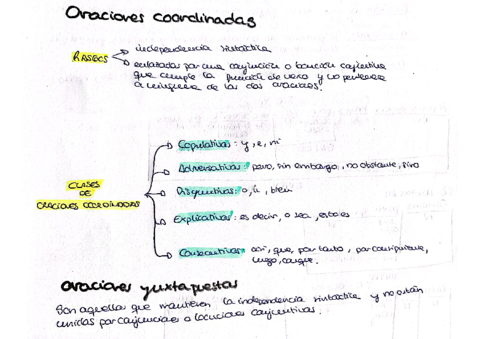 Oraciones coordinadas
RASGOS
independencia sintáctica
enlazadas por una conjunción o locución conjuntiva
que cumple la función de nexo y no pertenece
a ninguna de las dos oraciones.
CLASES
DE
ORACIONES COORDINADAS
Copulativas: y, e, ni
Adversativas: pero, sin embargo, no obstante, sino
Disyuntivas: o, u, bien
Explicativas: es decir, o sea, esto es
Consecutivas: así, que, por tanto, por consiguiente,
luego, conque.
oraciones yuxtapuestas
Son aquellas que mantienen la independencia sintáctica y no están
unidas por conjunciones o locuciones conjuntivas.